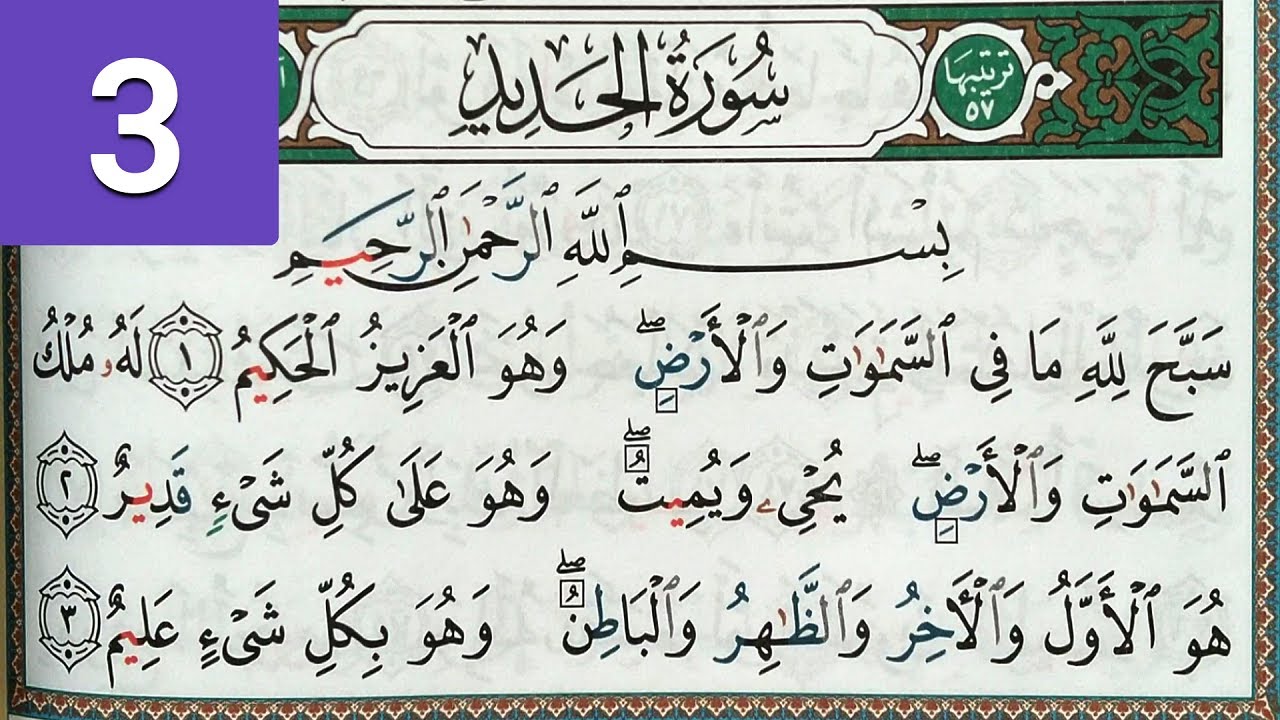 3
سُورَةُ الحَدِيدِ
تَرتيبُهَا
٥٧
بِسْمِ ٱللَّهِ ٱلرَّحْمَٰنِ ٱلرَّحِيمِ
سَبَّحَ لِلَّهِ مَا فِى ٱلسَّمَٰوَٰتِ وَٱلْأَرْضِۖ وَهُوَ ٱلْعَزِيزُ ٱلْحَكِيمُ ١ لَهُۥ مُلْكُ
ٱلسَّمَٰوَٰتِ وَٱلْأَرْضِۖ يُحْىِۦ وَيُمِيتُۖ وَهُوَ عَلَىٰ كُلِّ شَىْءٍ قَدِيرٌ ٢
هُوَ ٱلْأَوَّلُ وَٱلْأَخِرُ وَٱلظَّٰهِرُ وَٱلْبَاطِنُۖ وَهُوَ بِكُلِّ شَىْءٍ عَلِيمٌ ٣